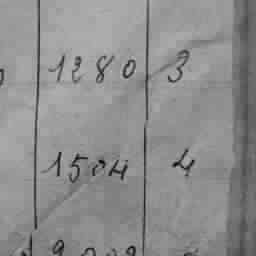 1280 3
1504 4